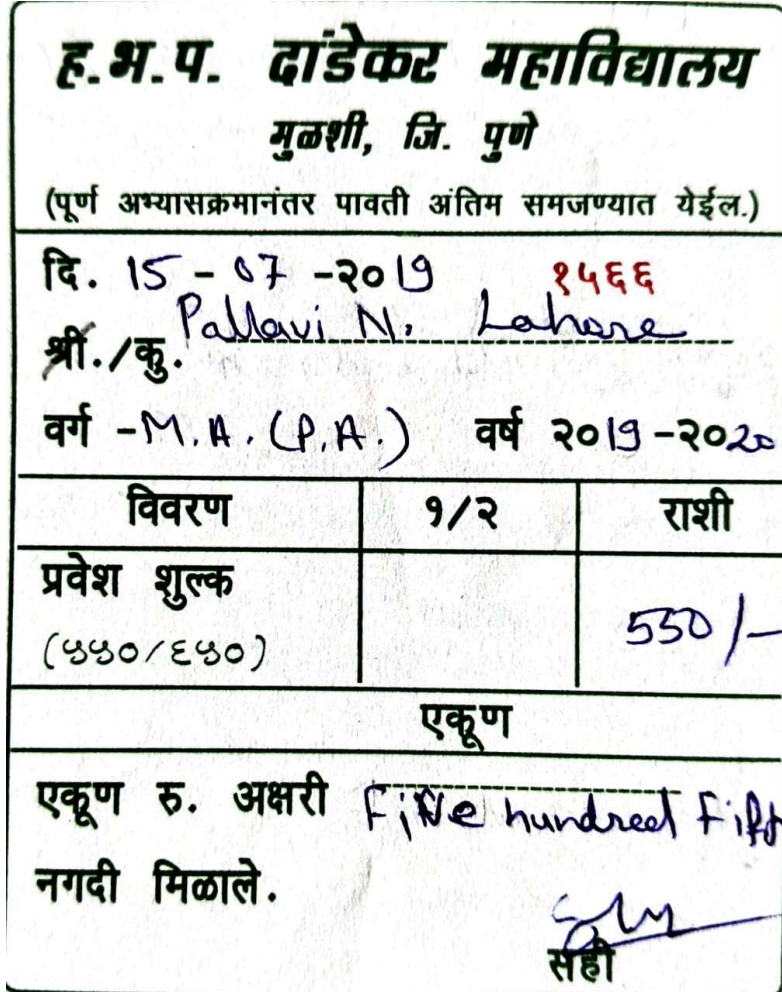 ह.भ.प. दांडेकर महाविद्यालय
मुळशी, जि. पुणे
(पूर्ण अभ्यासक्रमानंतर पावती अंतिम समजण्यात येईल.)
दि. 15 - 07 -२०19 १५६६
श्री./कु. Pallavi N. Lahare
वर्ग -M.A. (P.A.) वर्ष २०19 -२०20
विवरण १/२ राशी
प्रवेश शुल्क 550/-
(५५०/६५०)
एकूण
एकूण रु. अक्षरी Five hundred Fift
नगदी मिळाले.
सही